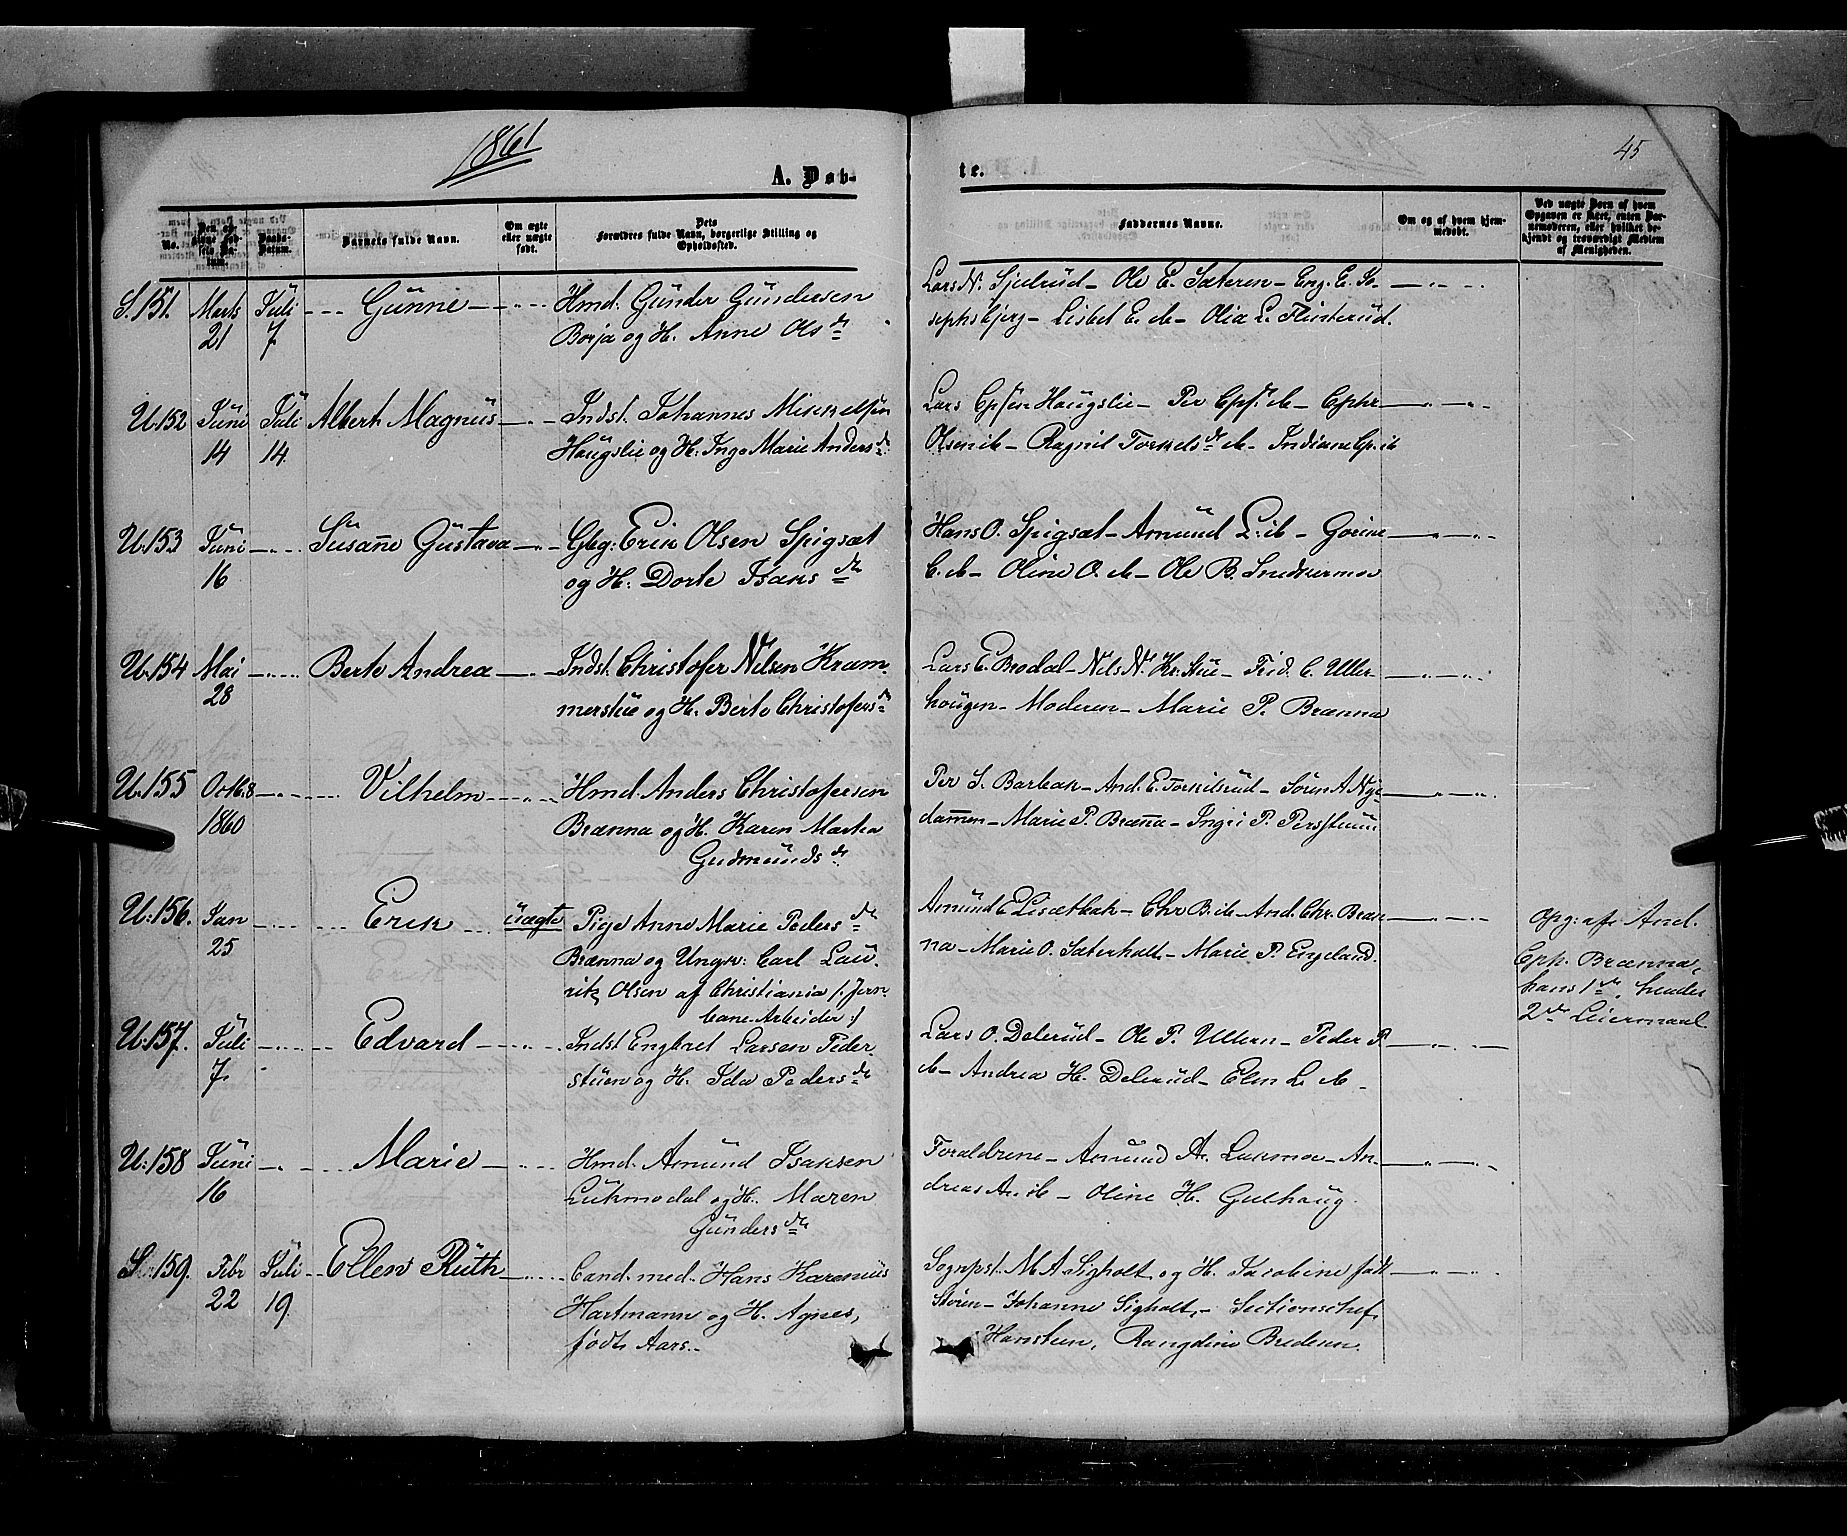 1861
45
A. Døb-
te.
No.
Barnets fulde Navn.
Om ægte eller uægte født.
Dets Forældres fulde Navn, borgerlige Stilling og Opholdssted.
Faddernes Navne.
Om og af hvem hjemmedøbt.
S. 151. Marts 21 Juli 7 Gunne Hmd. Gunder Gundersen
Borja og H. Anne Ols dr
Lars N. Sjulrud - Ole E. Sæteren - Eng. E. Jo-
sephsbjerg - Lisbet E. ib - Olia L. Flinterud.
U. 152 Juni 14 Juli 14. Albert Magnus Indst. Johannes Mikkelsen
Haugslie og H. Inge Marie Anders dr
Lars Haugslie - Per ib - Cphr
Olsen ib - Ragnil Torkels dr ib - Indiane ib
U. 153 Juni 16 Susanne Gustava Gbg: Erik Olsen Spigsæt
og H. Dorte Isaks dr
Hans O. Spigsæt - Amund L. ib - Gorine
E. ib - Oline O. ib - Ole B. Snedkermo
U. 154 Mai 28 Berte Andrea Indst. Christofer Nilsen Kram-
merstue og H. Berte Christofers dr
Lars E. Brodal - Nils N. Kr.stue - Frid. C. Uller-
hougen - Moderen - Marie P. Brænna
U. 155 Octb. 8 1860 Vilhelm Hmd. Anders Christofersen
Brænna og H. Karen Marthea
Gudmunds dr
Per S. Barbak - And. E. Torkilsrud - Søren A. Nye-
dammen - Marie P. Brænna - Inger P. Persstuen
U: 156. Jan 25 Erik uægte Pige Anne Marie Peders dr
Brænna og Ungk: Carl Lau-
ritz Olsen af Christiania /: Jern-
bane-Arbeider :/
Amund E Lisætbak - Chr B. ib - And. Chr. Bræn-
na - Marie O. Sæterholt - Marie P. Engeland.
Opg: af And.
Cph. Brænna,
hans 1ste, hendes
2det Leiermaal
U. 157. Juli 7. Edvard Indst Engbret Larsen Peder-
stuen og H. Ida Peders dr
Lars O. Delerud - Ole P. Ullern - Peder P
ib - Andrea H. Delerud - Elen L. ib -
U: 158 Juni 16 Marie Hmd. Amund Isaksen
Lukmodal og H. Maren
Gunders dr
Forældrene - Amund A. Lukmoe - An-
dreas A. ib - Oline H. Gulhaug.
S. 159. Febr 22 Juli 19. Ellen Ruth Cand. med. Hans Karenius
Hartmann og H. Agnes,
født Aars.
Sognpst. M. A. Sigholt og H. Jacobine født
Støren - Johanne Sigholt, - Sectionschef
Hansteen,